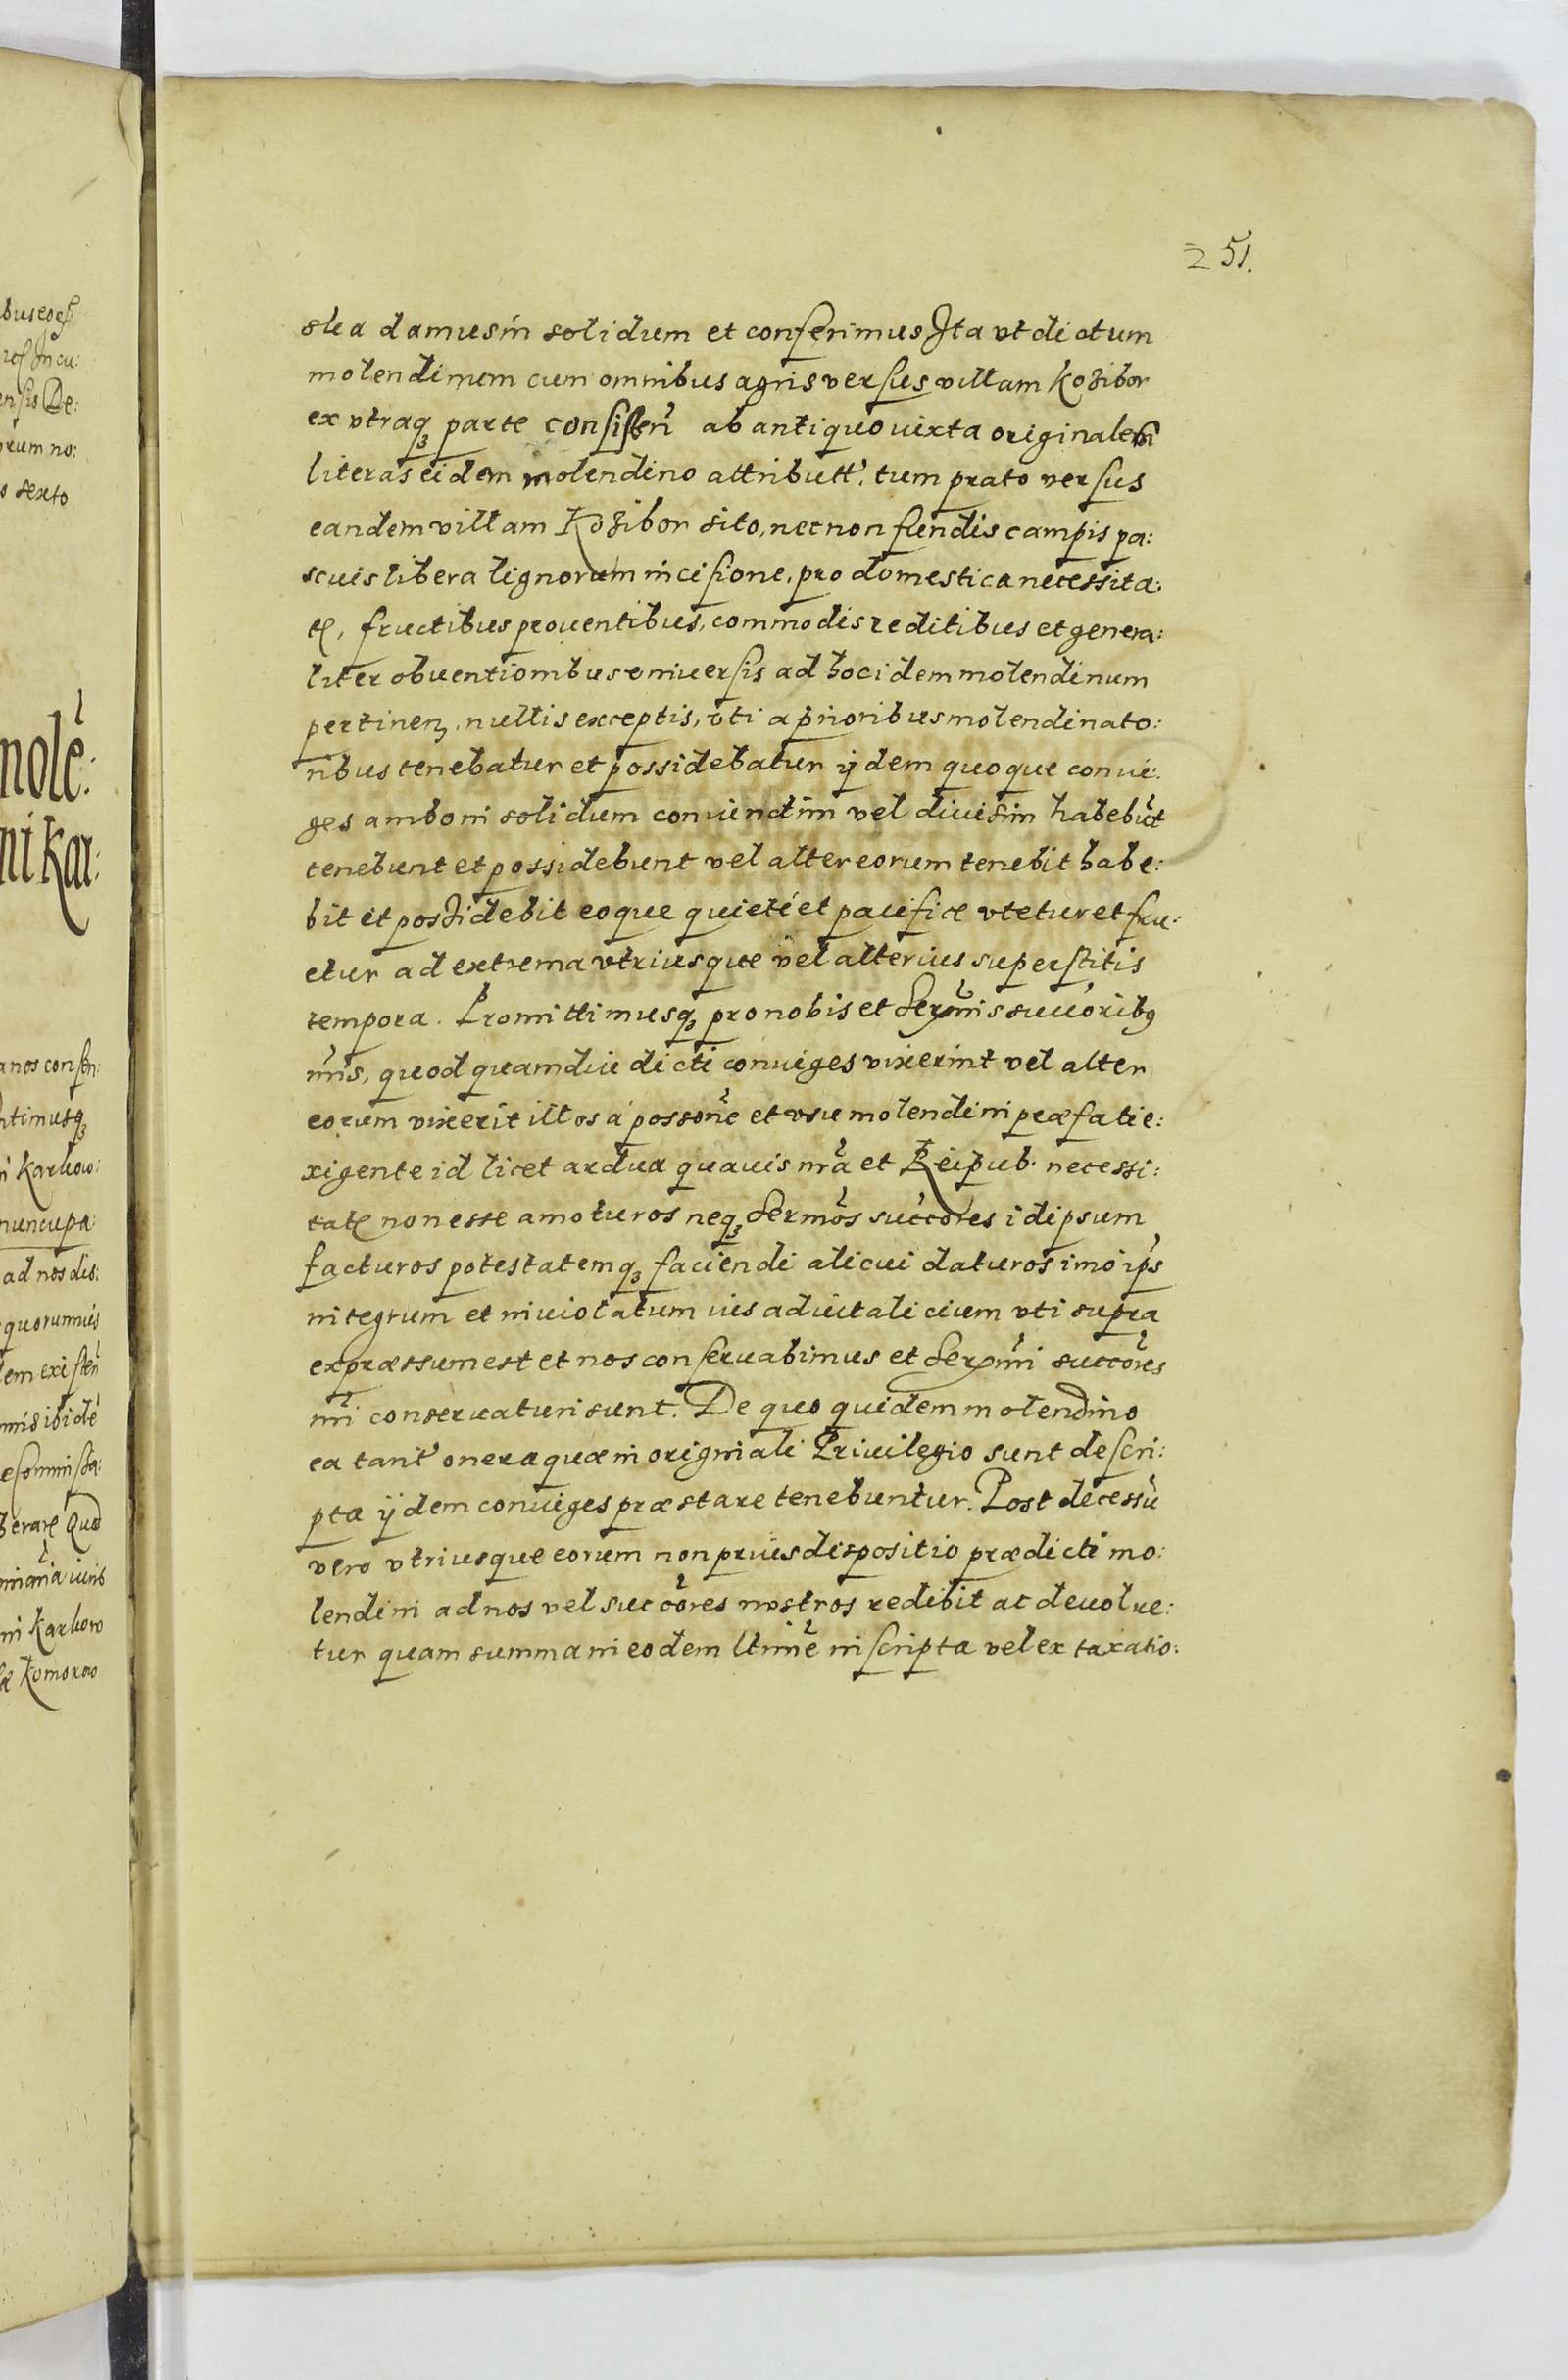 251.
slea damus in solidum et conferimus Ita vt dictum
molendinum cum omnibus agris versus villam Kozibor
ex vtraqȝ parte consisteñ ab antiquo iuxta originalem
literas eidem molendino attributt. tum prato versus
eandem villam Kozibor sito, necnon fundis campis pa:
scuis libera lignorum incisione, pro domestica necessita:
te, fructibus prouentibus, commodis reditibus et genera:
liter obuentionibus vniuersis ad hoc idem molendinum
pertinenȝ, nullis exceptis, vti a prioribus molendinato:
ribus tenebatur et possidebatur ijdem quoque coniu:
ges ambo in solidum coniunctim vel diuisim habebūt
tenebunt et possidebunt vel alter eorum tenebit habe:
bit et possidebit eoque quiete et pacifice vtetur et fru:
etur ad extrema vtriusque vel alterius superstitis
tempora. Promittimusqȝ pro nobis et Sermīs succoribꝰ
nrīs, quod quamdiu dicti coniuges vixerint vel alter
eorum vixerit illos a possone et vsu molendini præfati e:
xigente id licet ardua quauis nrã et Reipub. necessi:
tate non esse amoturos neqȝ Sermos succores idipsum
facturos potestatemqȝ faciendi alicui daturos imo ips
integrum et inuiolatum ius aduitalicium vti supra
expræssum est et nos conseruabimus et Sermī succores
nrī conseruaturi sunt. De quo quidem molendino
ea tant onera quæ in originali Priuilegio sunt descri:
pta ijdem coniuges præstare tenebuntur. Post decessū
vero vtriusque eorum non prius dispositio prædicti mo:
lendini ad nos vel succores nostros redibit ac deuolue:
tur quam summa in eodem ltime inscripta vel ex taxatio: